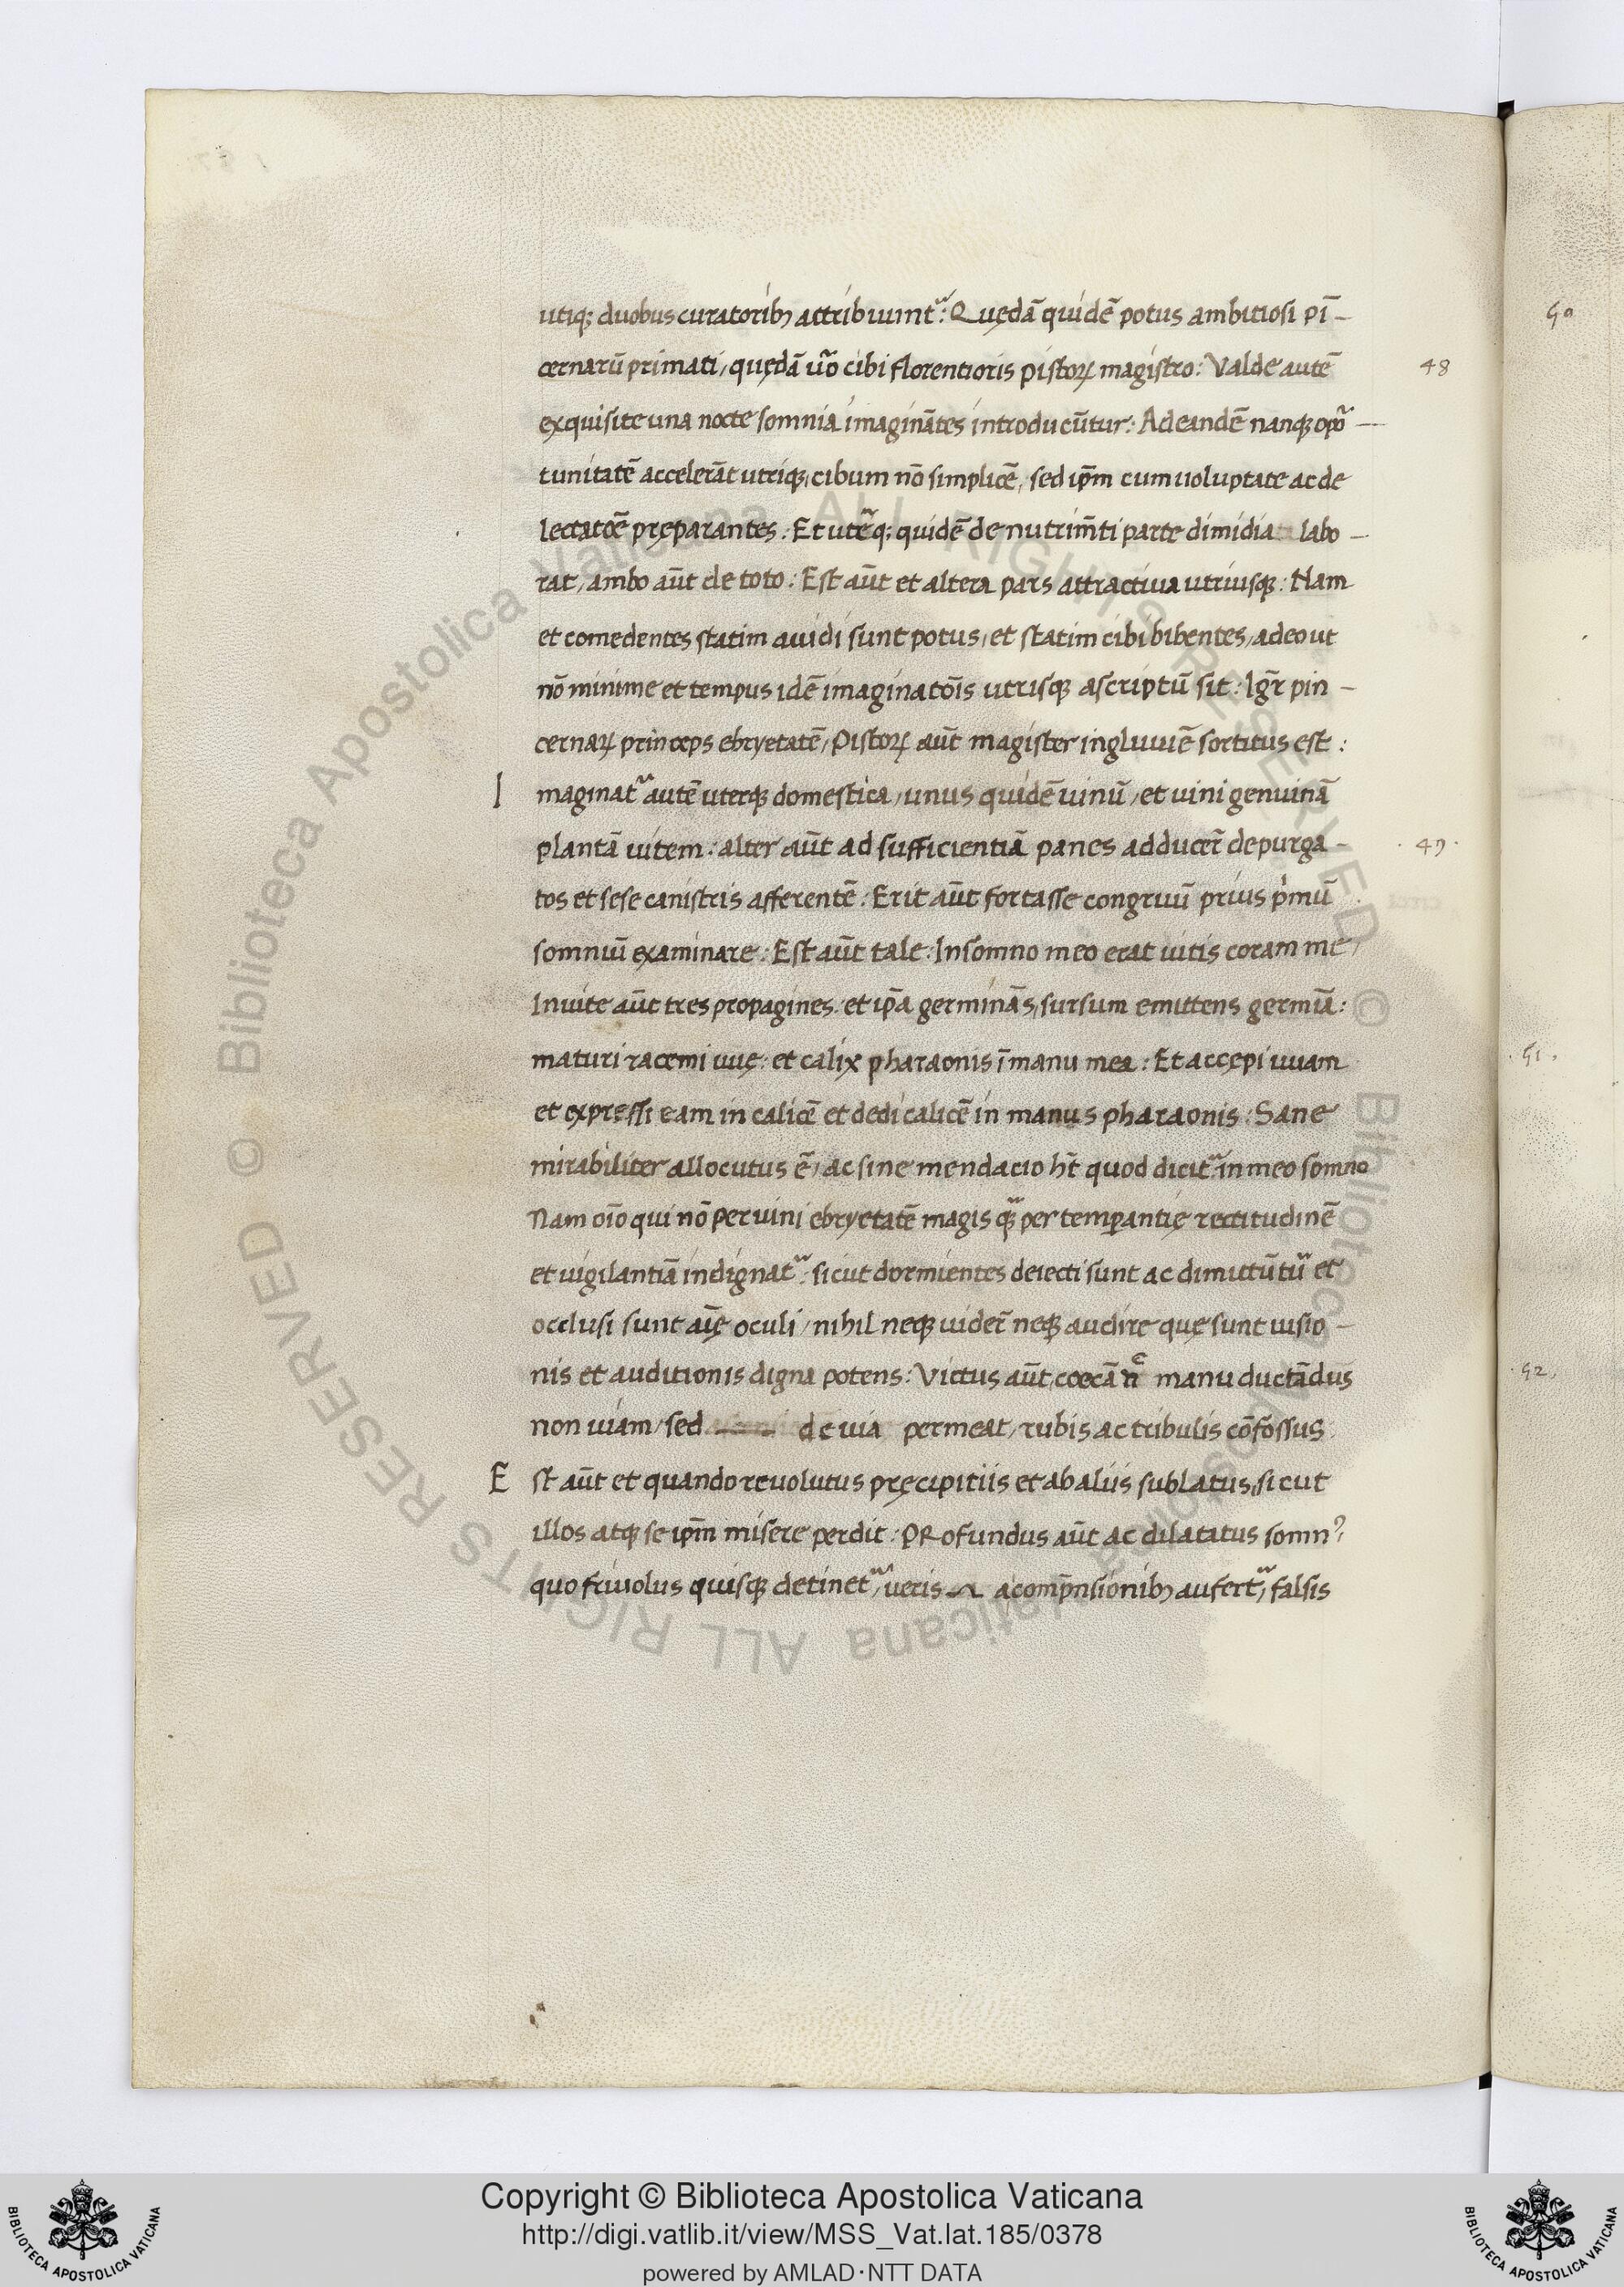 utiq; duobus curatorib; attribuunt᷑: Quędā quidē potus ambitiosi pī-
cernarū primati, quędā u͞o cibi florentioris pistoꝝ magistro: Valde autē
48
exquisite una nocte somnia imagināntes introducūtur: Ad eandē nanq; opo͞r-
tunitatē accelerāt utriq;, cibum nō simplicē, sed ip͞m cum uoluptate ac de
lectatōē pręparantes: Et uterq; quidē de nutrim̄ti parte dimidia labo-
rat, ambo aūt de toto: Est aūt et altera pars attractiua utriusq;: Nam
et comedentes statim auidi sunt potus, et statim cibi bibentes, adeo ut
nō minime et tempus idē imaginatōis utrisq; ascriptū sit: Igr̄ pin-
cernaꝝ princeps ebryetatē, Pistoꝝ aūt magister ingluuiē sortitus est:
I maginat᷑ autē uterq; domestica, unus quidē uinū, et uini genuinā
plantā uitem: alter aūt ad sufficientiā panes adducer̄ depurga-
49
tos et sese canistris afferentē: Erit aūt fortasse congruū prius pͥmū
somniū examinare: Est aūt tale: In somno meo erat uitis coram me,
In uite aūt tres propagines: et ip̄a germinās, sursum emittens germīa:
maturi racemi uuę: et calix pharaonis ī manu mea: Et accępi uuam
et expressi eam in calicē et dedi calicē in manus pharaonis: Sane
mirabiliter allocutus ē, ac sine mendacio ht̄ quod dicit᷑ in meo somno
Nam oīo qui nō per uini ebryetatē magis qᷓ per temperantię rectitudinē
et uigilantiā indignat᷑: sicut dormientes deiecti sunt ac dimittūtu᷑ et
occlusi sunt aīę oculi, nihil neq; uider̄ neq; audire quę sunt uisio-
nis et auditionis digna potens: Victus aūt, coecā n̄c manu ductādus
non uiam, sed deuia permeat, rubis ac tribulis cōfossus
E st aūt et quando reuolutus pręcipitiis et ab aliis sublatus, sicut
illos atq; se ip͞m misere perdit: PRofundus aūt ac dilatatus somn⁹,
quo friuolus quisq; detinet᷑, ueris a comp̄nsionib; aufert᷑, falsis
50
51
52
Copyright © Biblioteca Apostolica Vaticana
http://digi.vatlib.it/view/MSS_Vat.lat.185/0378
powered by AMLAD·NTT DATA